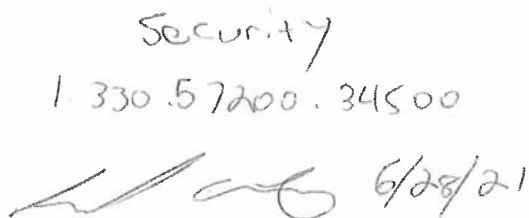 Security
1.330.57200.34500
6/28/21